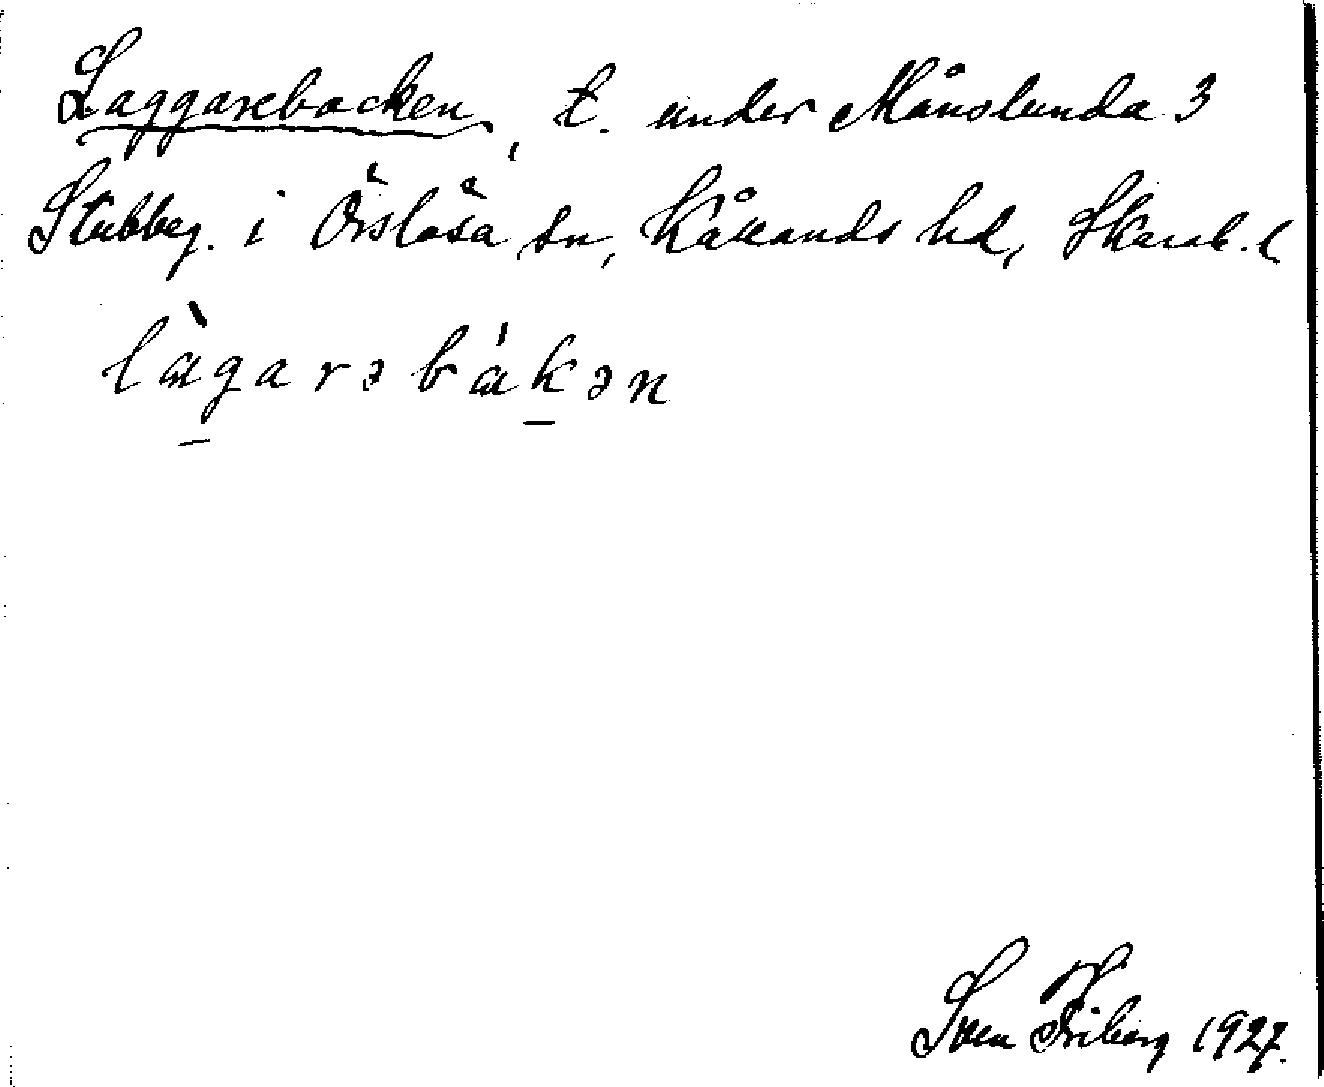 Laggarebacken, t. under Månslunda 3
Stubbeg. i Örslösa sn, Kållands hd, Skarab. l
làgarəbákən
Sven Friberg 1927.